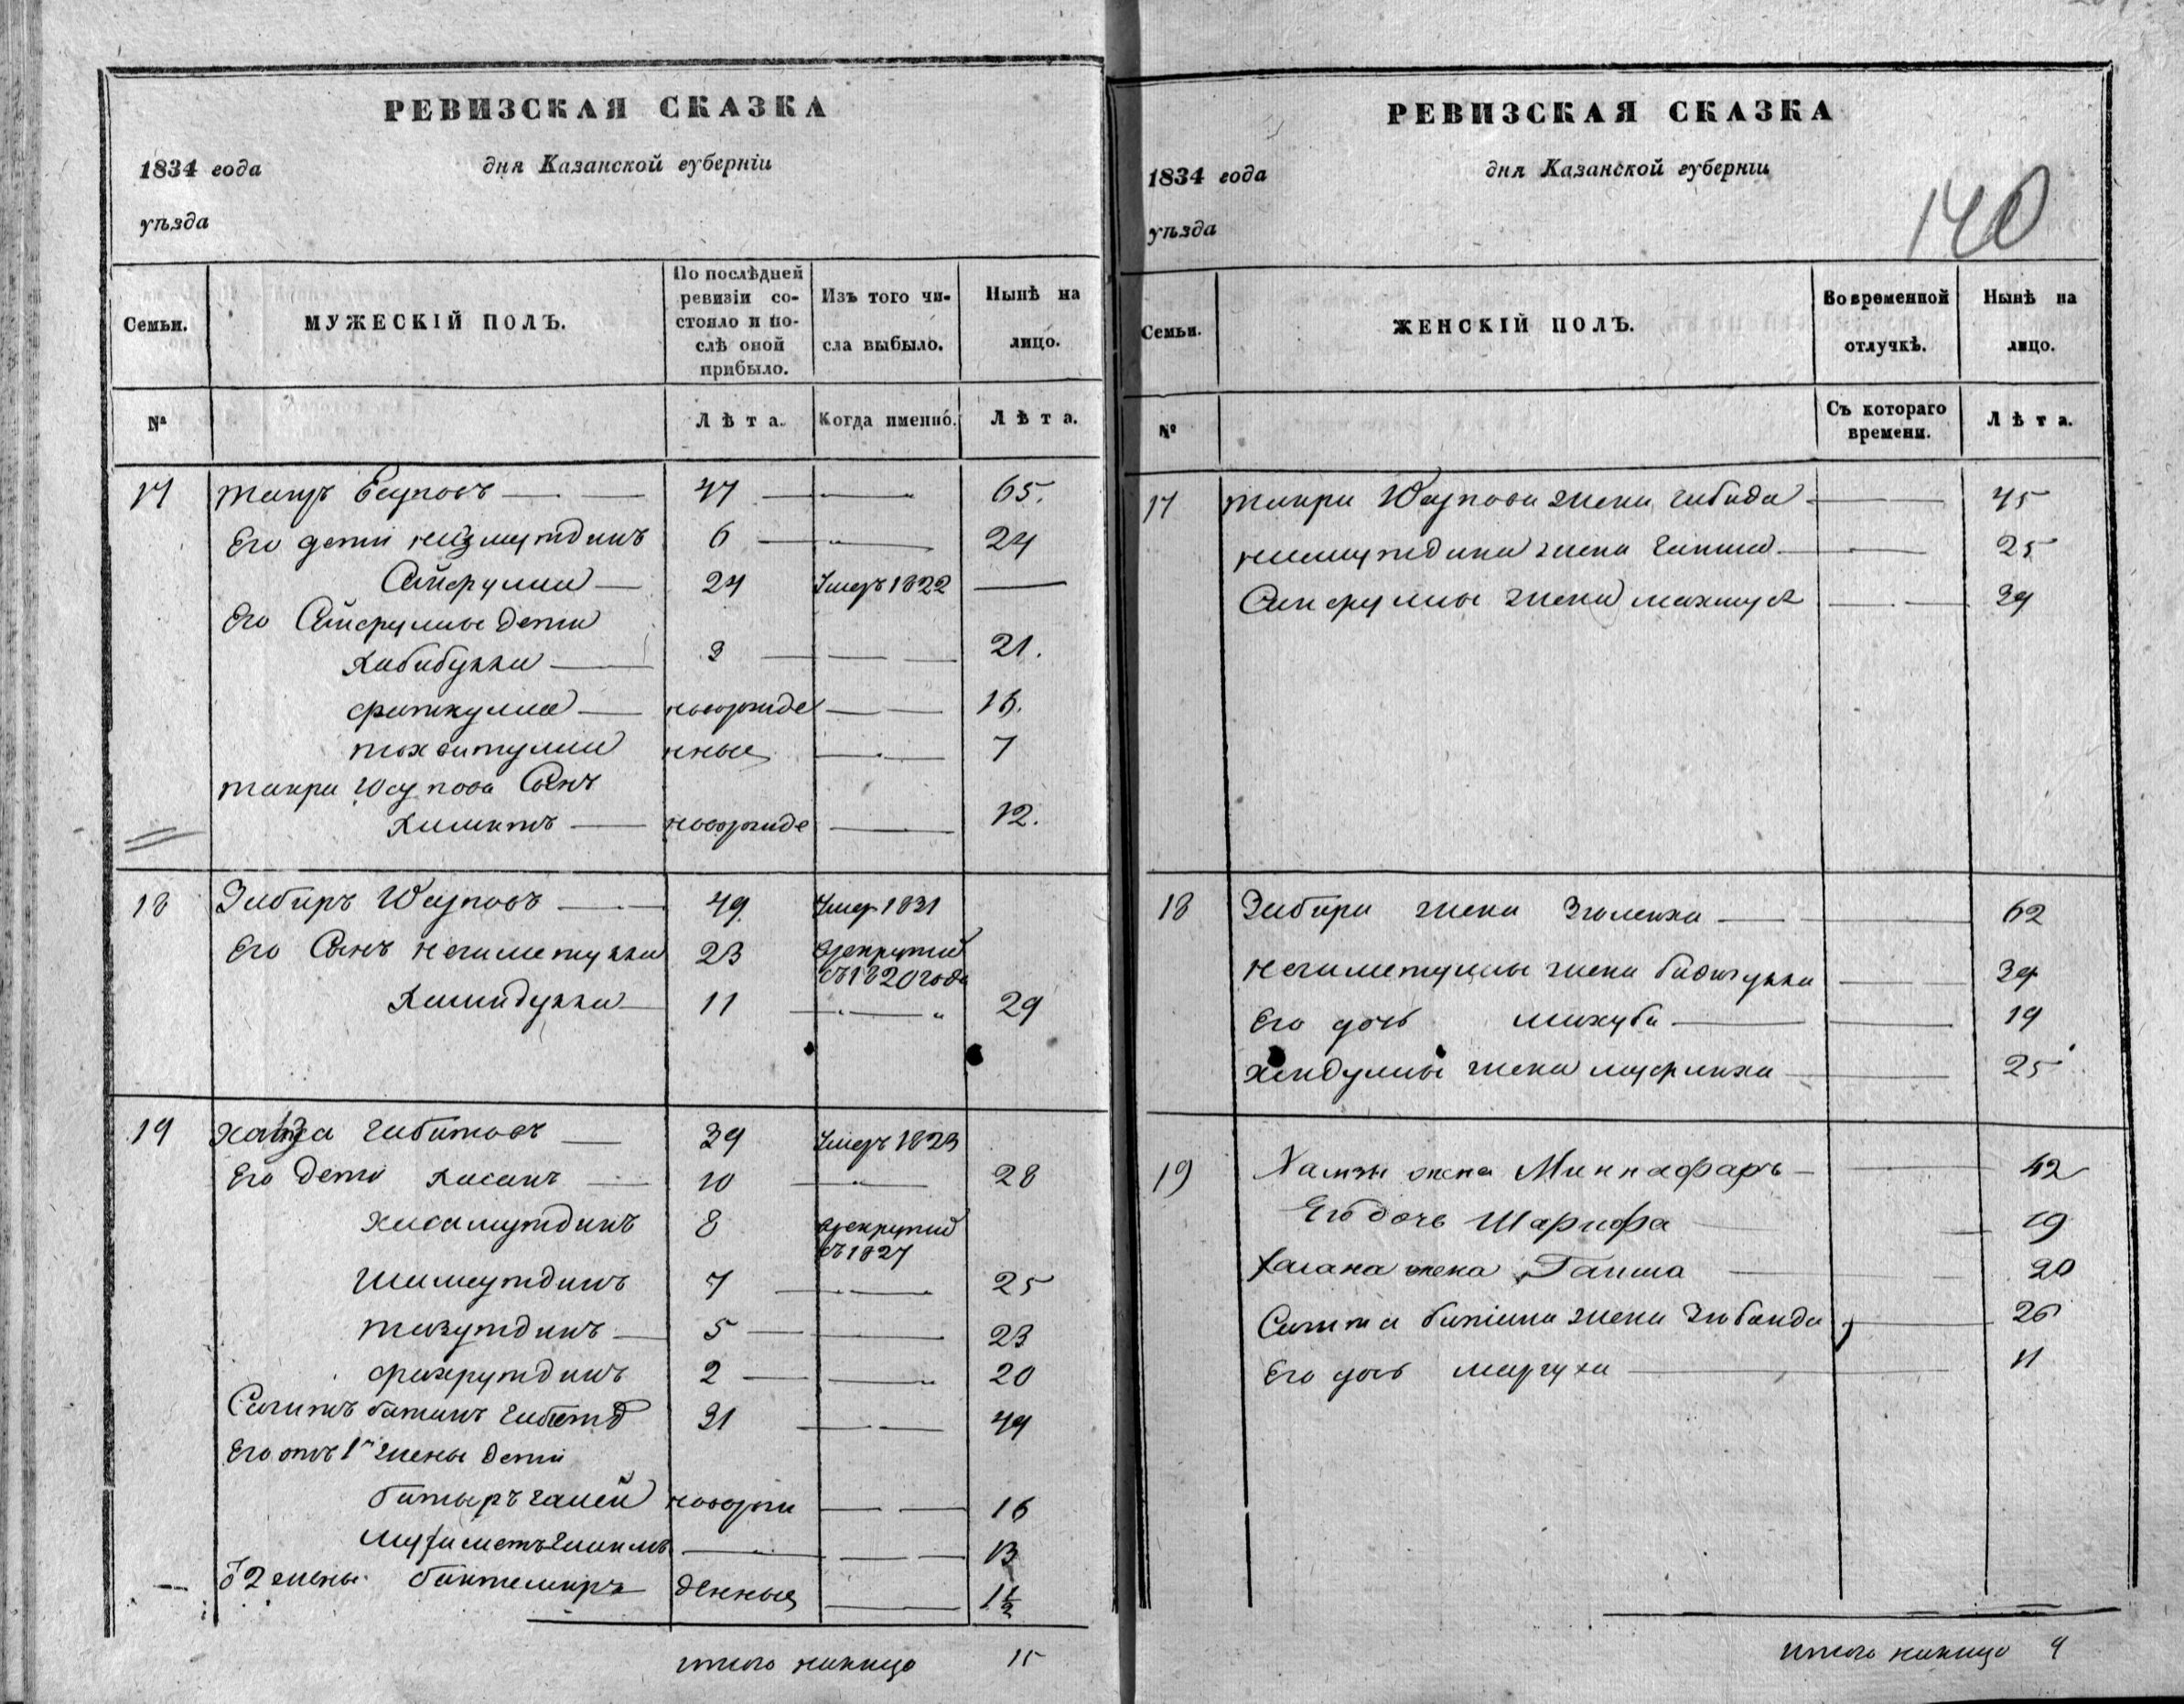 РЕВИЗСКАЯ СКАЗКА
1834 года дня Казанской губернiи
уѣзда
Семьи.
МУЖЕСКIЙ ПОЛЪ.
По послѣдней ревизiи состояло и послѣ оной прибыло.
Изъ того числа выбыло.
Нынѣ на лицо.
№
Лѣта.
Когда именно.
Лѣта.
17 Таиръ Есуповъ 47 65.
Его дети низмутдинъ 6 24
Сайфулла 24 Умеръ 1822
Его Сайфуллы дети
Хабибулла 3 21.
фаткулла новорожде 16.
тохватулла нные 7
таира Юсупова Сынъ
Хаматъ новорожде 12.
18 Забиръ Юсуповъ 49 Умер 1831
Его Сынъ негаметулла 23 врекруты въ 1820 года
Хамидулла 11 29
19 Хамза Габитовъ 39 Умеръ 1823
Его дети Хасанъ 10 28
хисамутдинъ 8 врекруты въ 1827
Шамсутдинъ 7 25
тазутдинъ 5 23
фахрутдинъ 2 20
Сагитъ баталъ 31 49
Его отъ 1й жены дети
батыръ галей новорож 16
13
2 жены бактемиръ денные 1½
итого налицо 15
РЕВИЗСКАЯ СКАЗКА
1834 года дня Казанской губернiи
уѣзда
140
Семьи.
ЖЕНСКIЙ ПОЛЪ.
Во временной отлучкѣ.
Нынѣ на лицо.
№
Съ котораго времени.
Лѣта.
17 таира Юсупова жена Габида 45
жена Гайша 25
Сайфуллы жена 39
18 Забира жена Зюлейха 62
негаметуллы жена 39
Его дочь махуба 19
жена 25
19 Хамзы жена Миннафаръ 42
Его дочь Шарифа 19
Хасана жена Гайша 20
Сагита жена 26
Его дочь 11
итого налицо 9